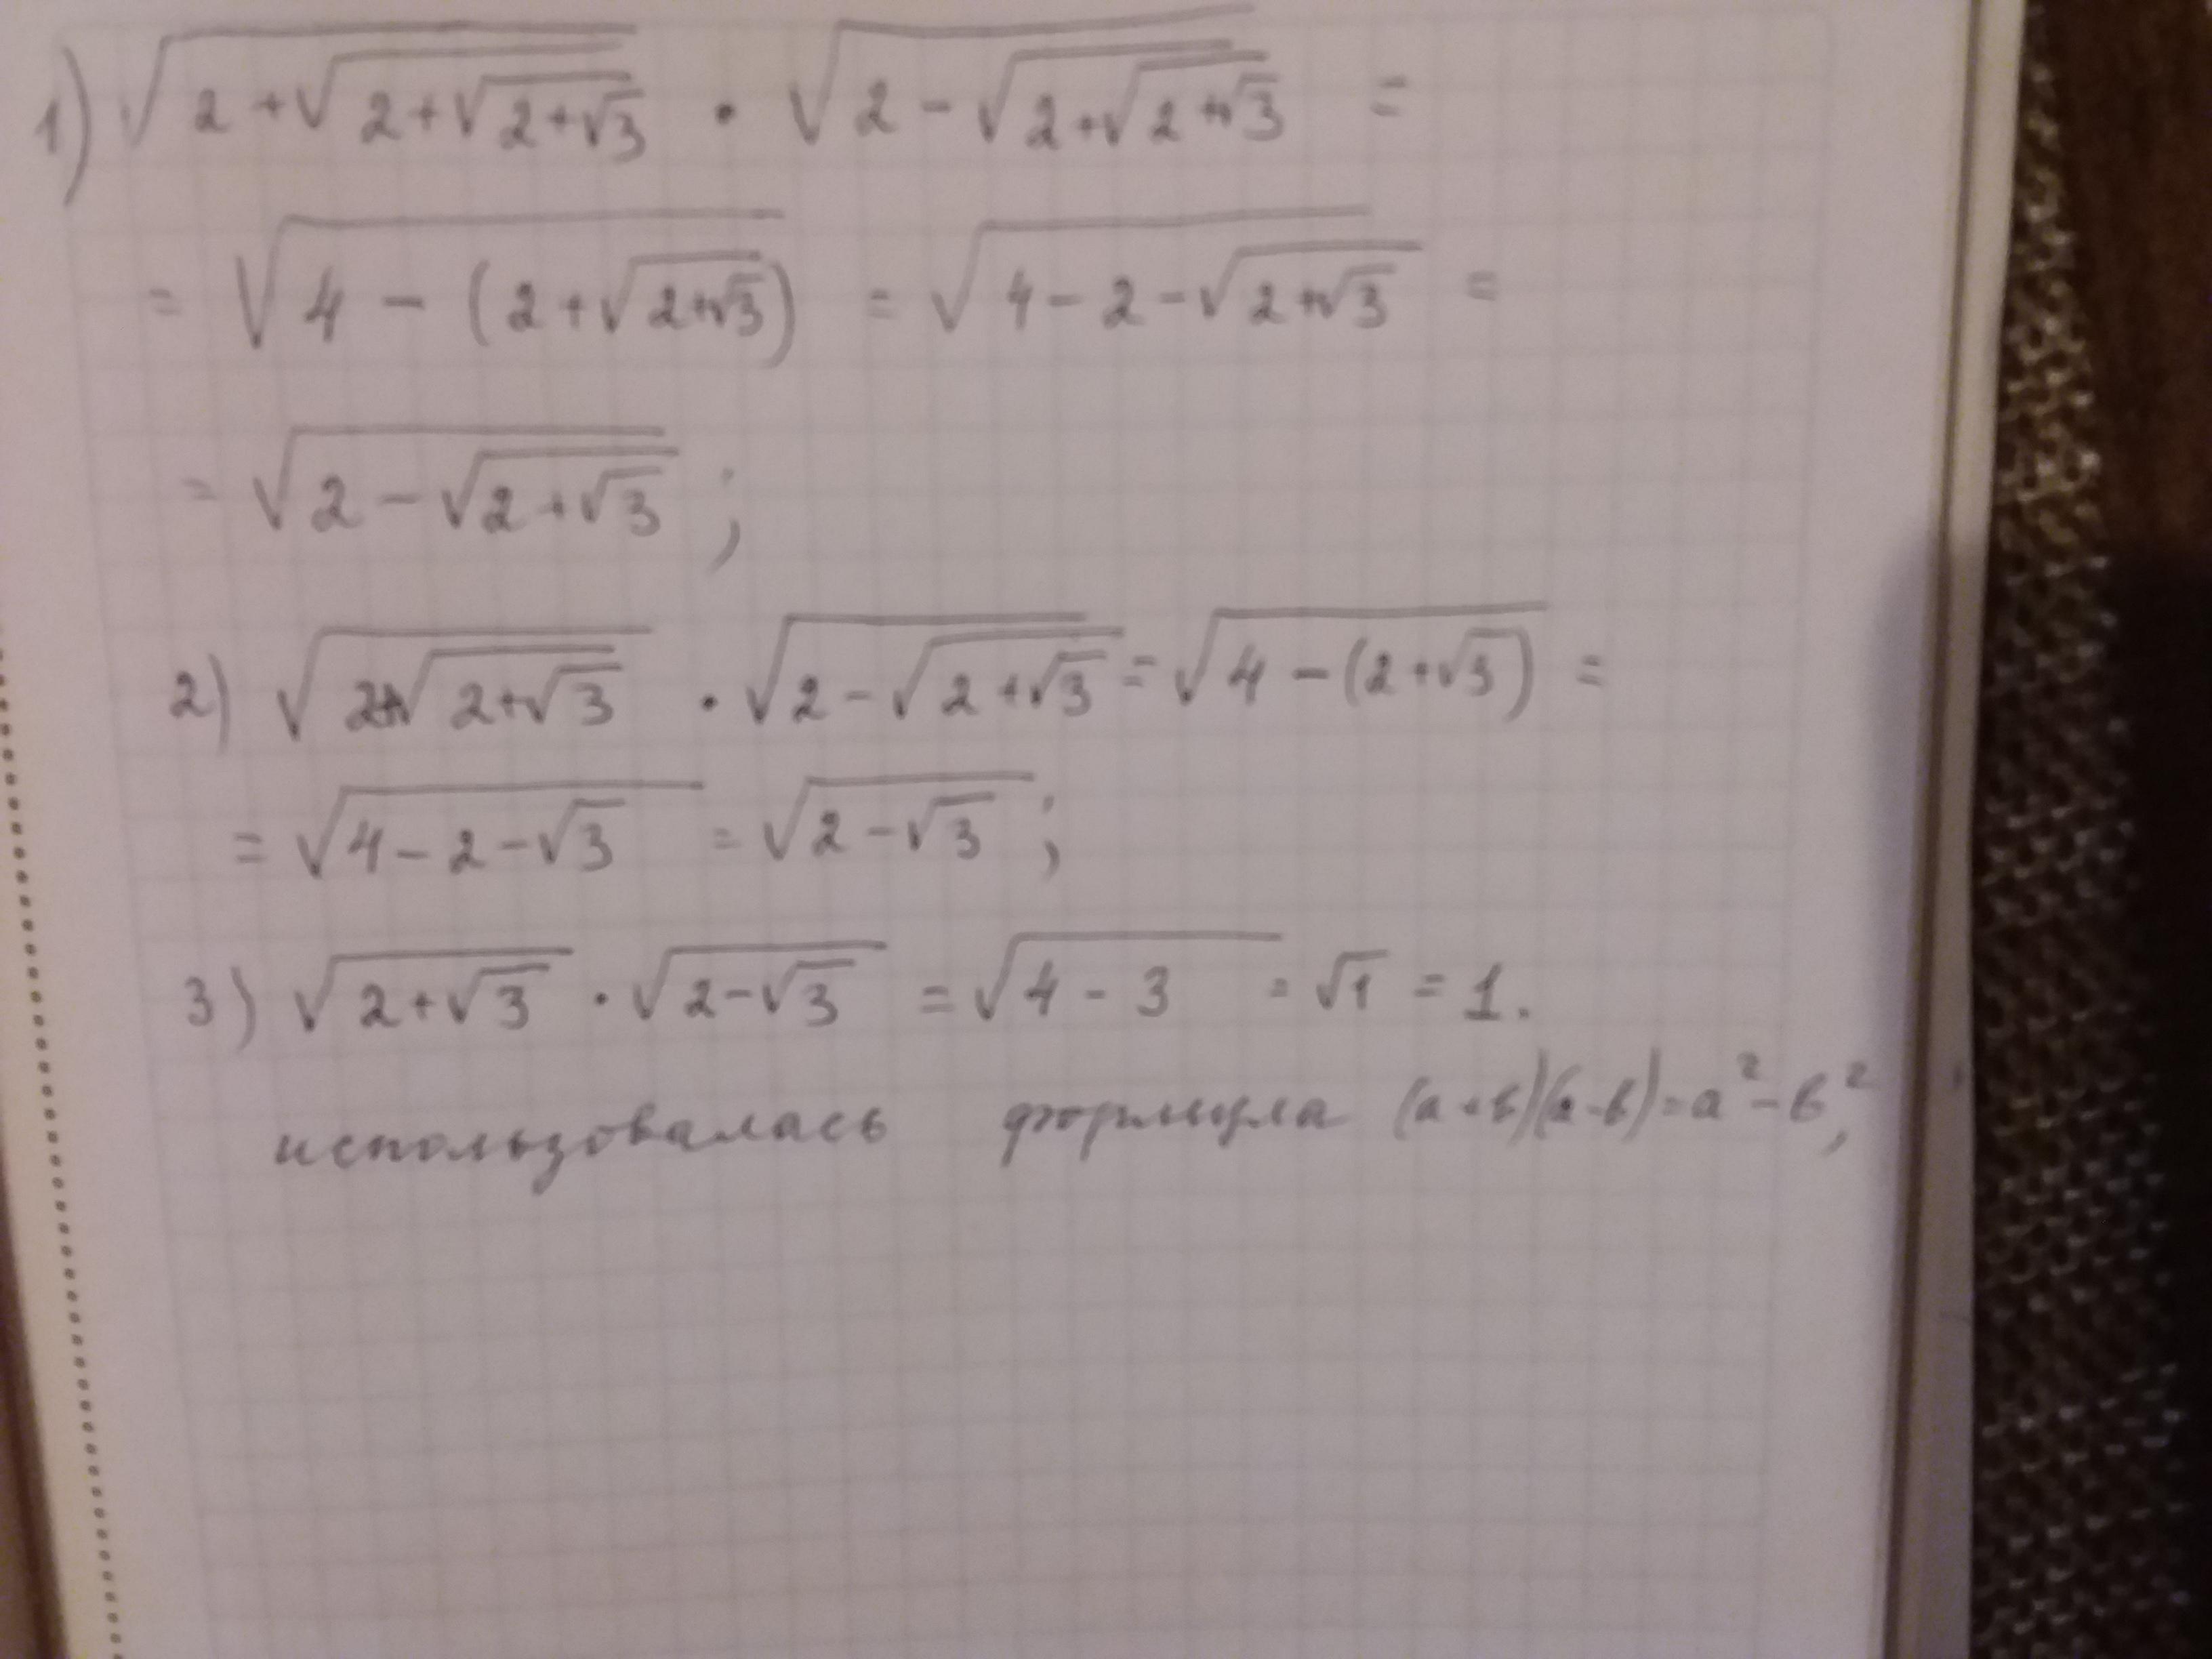 1) √(2+√(2+√(2+√3))) · √(2-√(2+√(2+√3))) =
= √(4-(2+√(2+√3))) = √(4-2-√(2+√3)) =
= √(2-√(2+√3)) ;
2) √(2+√(2+√3)) · √(2-√(2+√3)) = √(4-(2+√3)) =
= √(4-2-√3) = √(2-√3) ;
3) √(2+√3) · √(2-√3) = √(4-3) = √1 = 1.
использовалась формула (a+b)(a-b)=a²-b²,